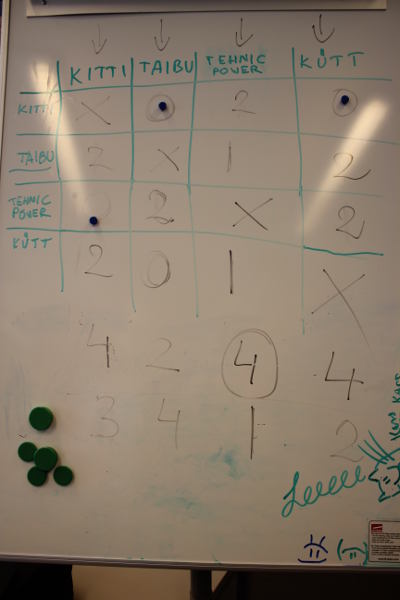 KITTI TAIBU TEHNIC POWER KÜTT
KITTI X 0 2 0
TAIBU 2 X 1 2
TEHNIC POWER 0 2 X 2
KÜTT 2 0 1 X
4 2 4 4
3 4 1 2
Leeeee